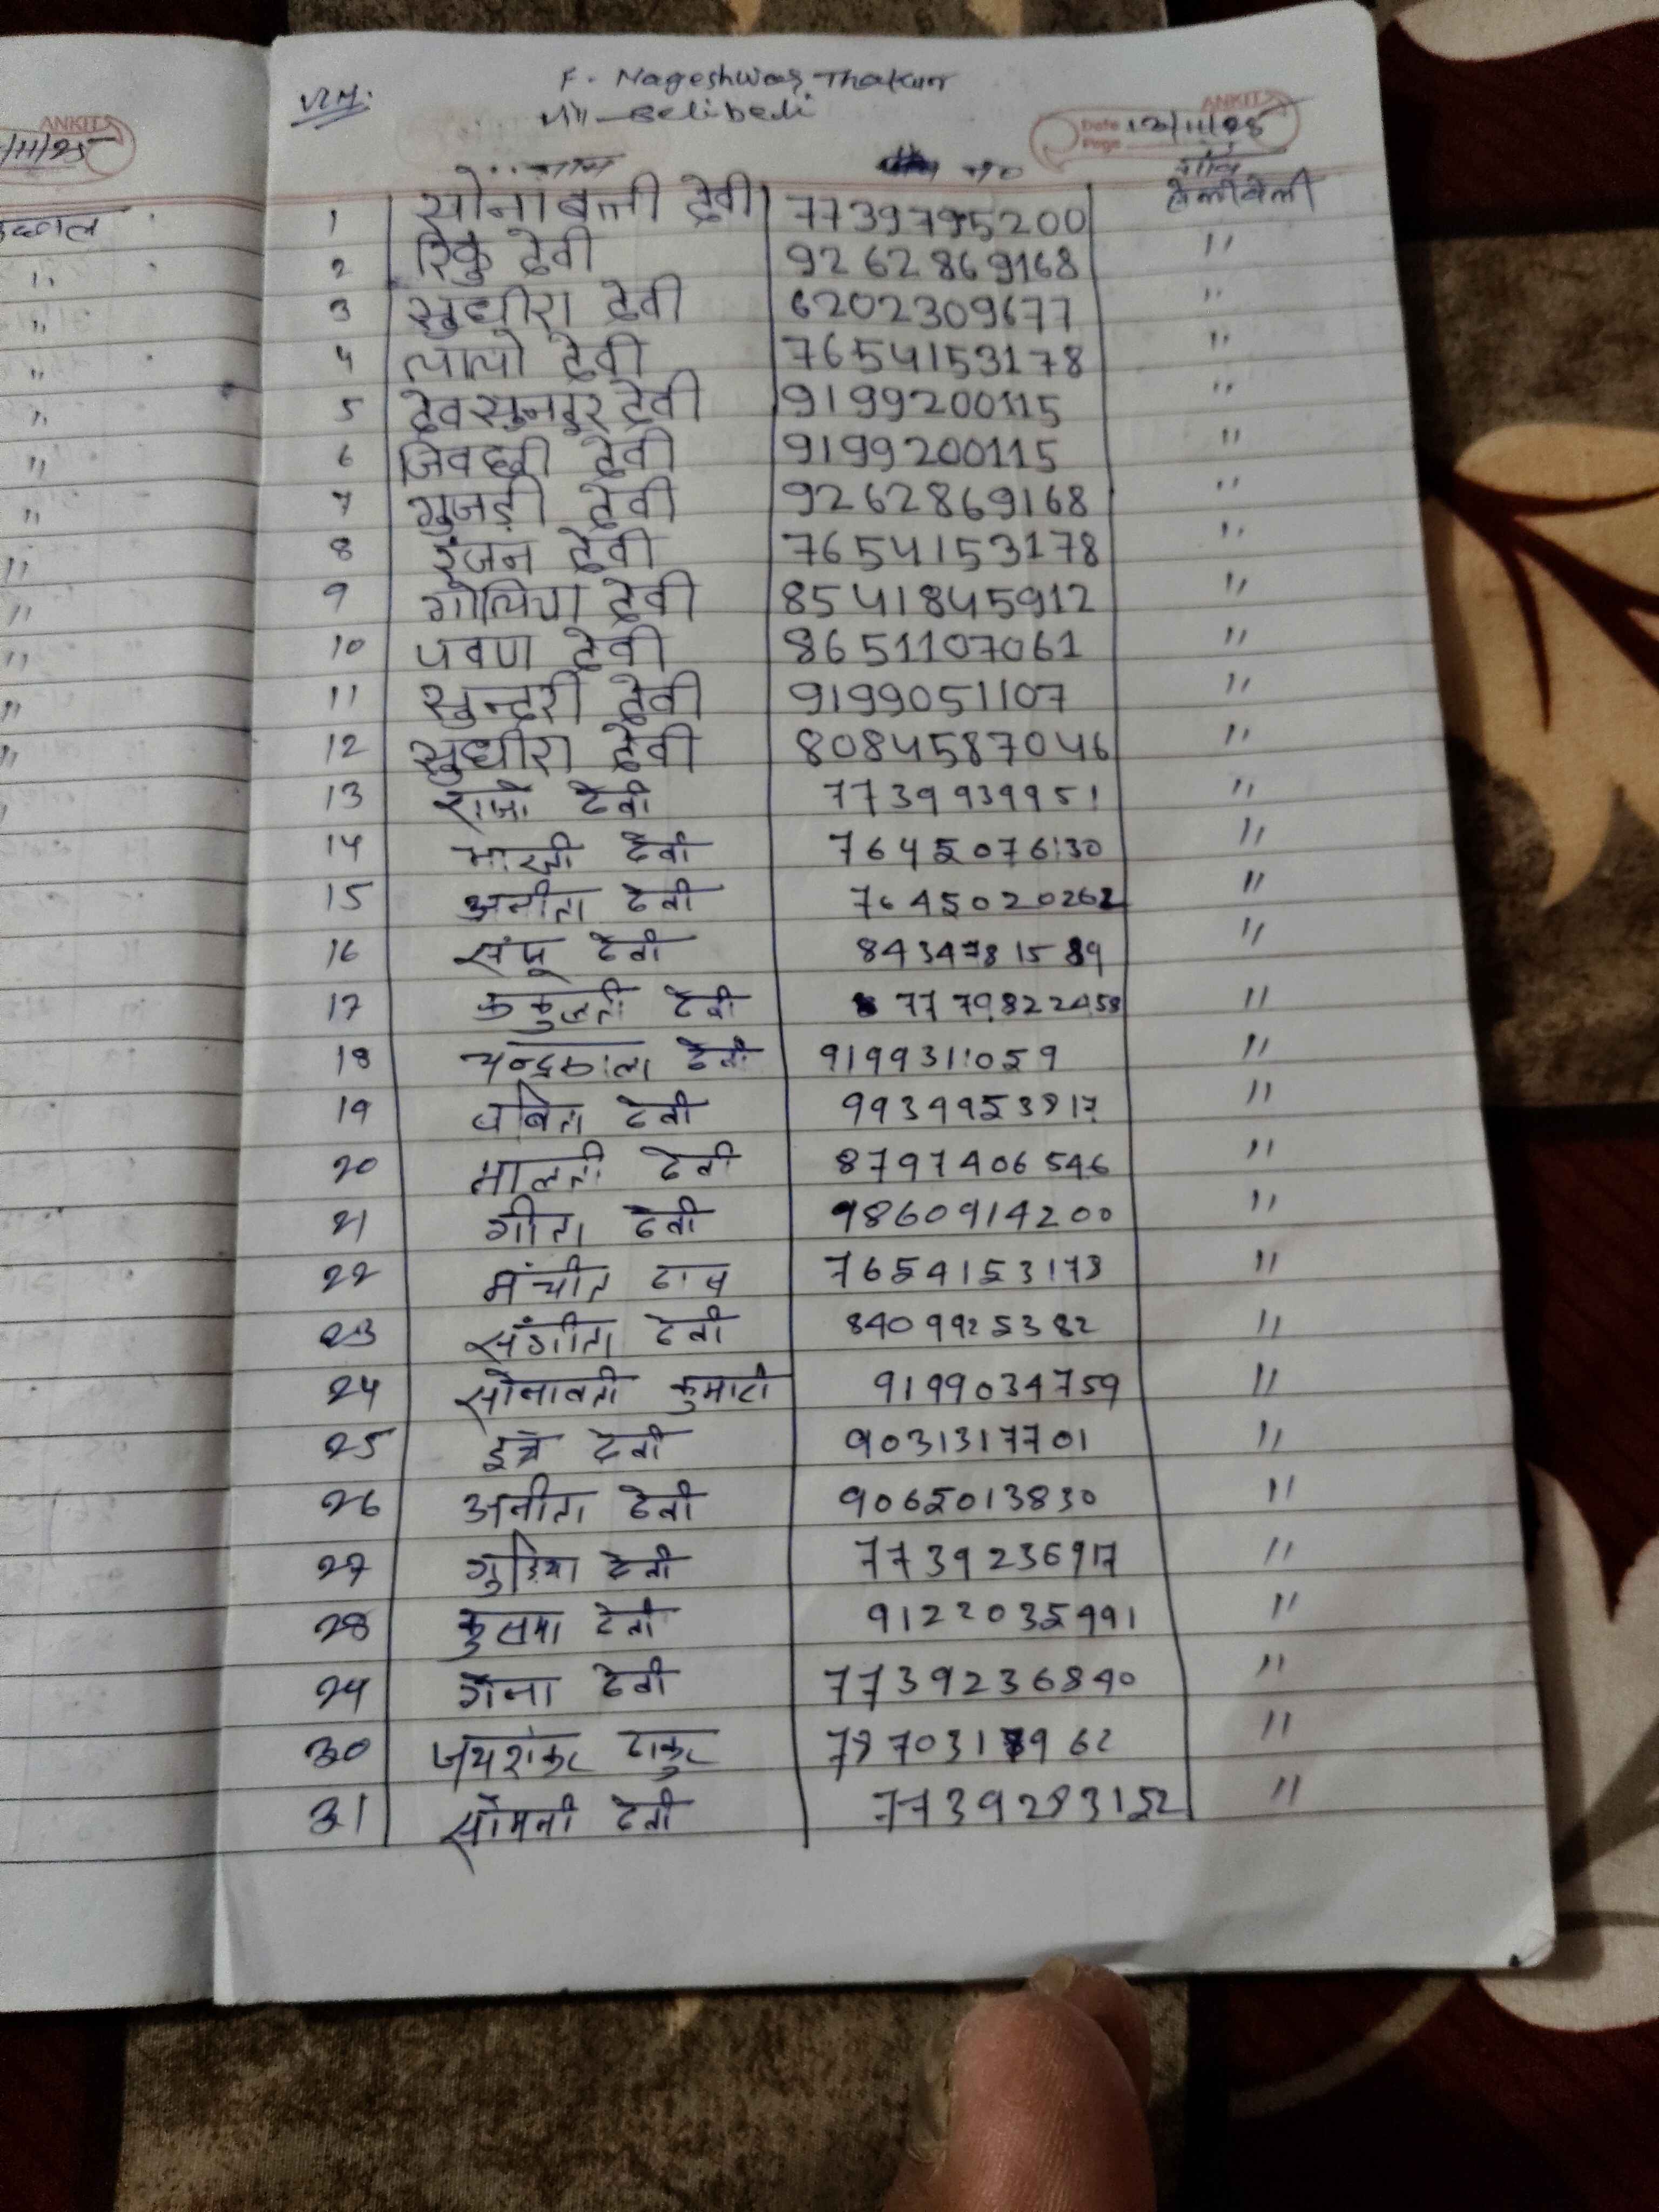 VLM:
F. Nageshwar Thakur
Vill - Belibedi
ANKIT
Date 12/11/25
Page
ANKIT
/11/25
नाम नं० गाँव
1 सोनाबत्ती देवी 7739795200 बेलीबेली
2 रिंकु देवी 9262869168 "
3 सुधीरा देवी 6202309677 "
4 लालो देवी 7654153178 "
5 देवसुनदर देवी 9199200115 "
6 जिवछरी देवी 9199200115 "
7 गुजड़ी देवी 9262869168 "
8 रंजन देवी 7654153178 "
9 गोलिया देवी 8541845912 "
10 पवण देवी 8651107061 "
11 सुन्दरी देवी 9199051107 "
12 सुधीरा देवी 8084587046 "
13 राजो देवी 7739939951 "
14 देवी 7645076130 "
15 अनीता देवी 7645020262 "
16 संजू देवी 8434781589 "
17 देवी 7779822458 "
18 चन्द्रकाला देवी 9199311059 "
19 बबिता देवी 9939953917 "
20 मालती देवी 8797406546 "
21 गीता देवी 9860914200 "
22 मंचीत दास 7654153178 "
23 संगीता देवी 8409925382 "
24 सोनावती कुमारी 9199034759 "
25 देवी 9031317701 "
26 अनीता देवी 9065013830 "
27 गुड़िया देवी 7739236917 "
28 कुसमा देवी 9122035991 "
29 देवी 7739236840 "
30 जयशंकर ठाकुर 62 "
31 सोमनी देवी 7739283152 "